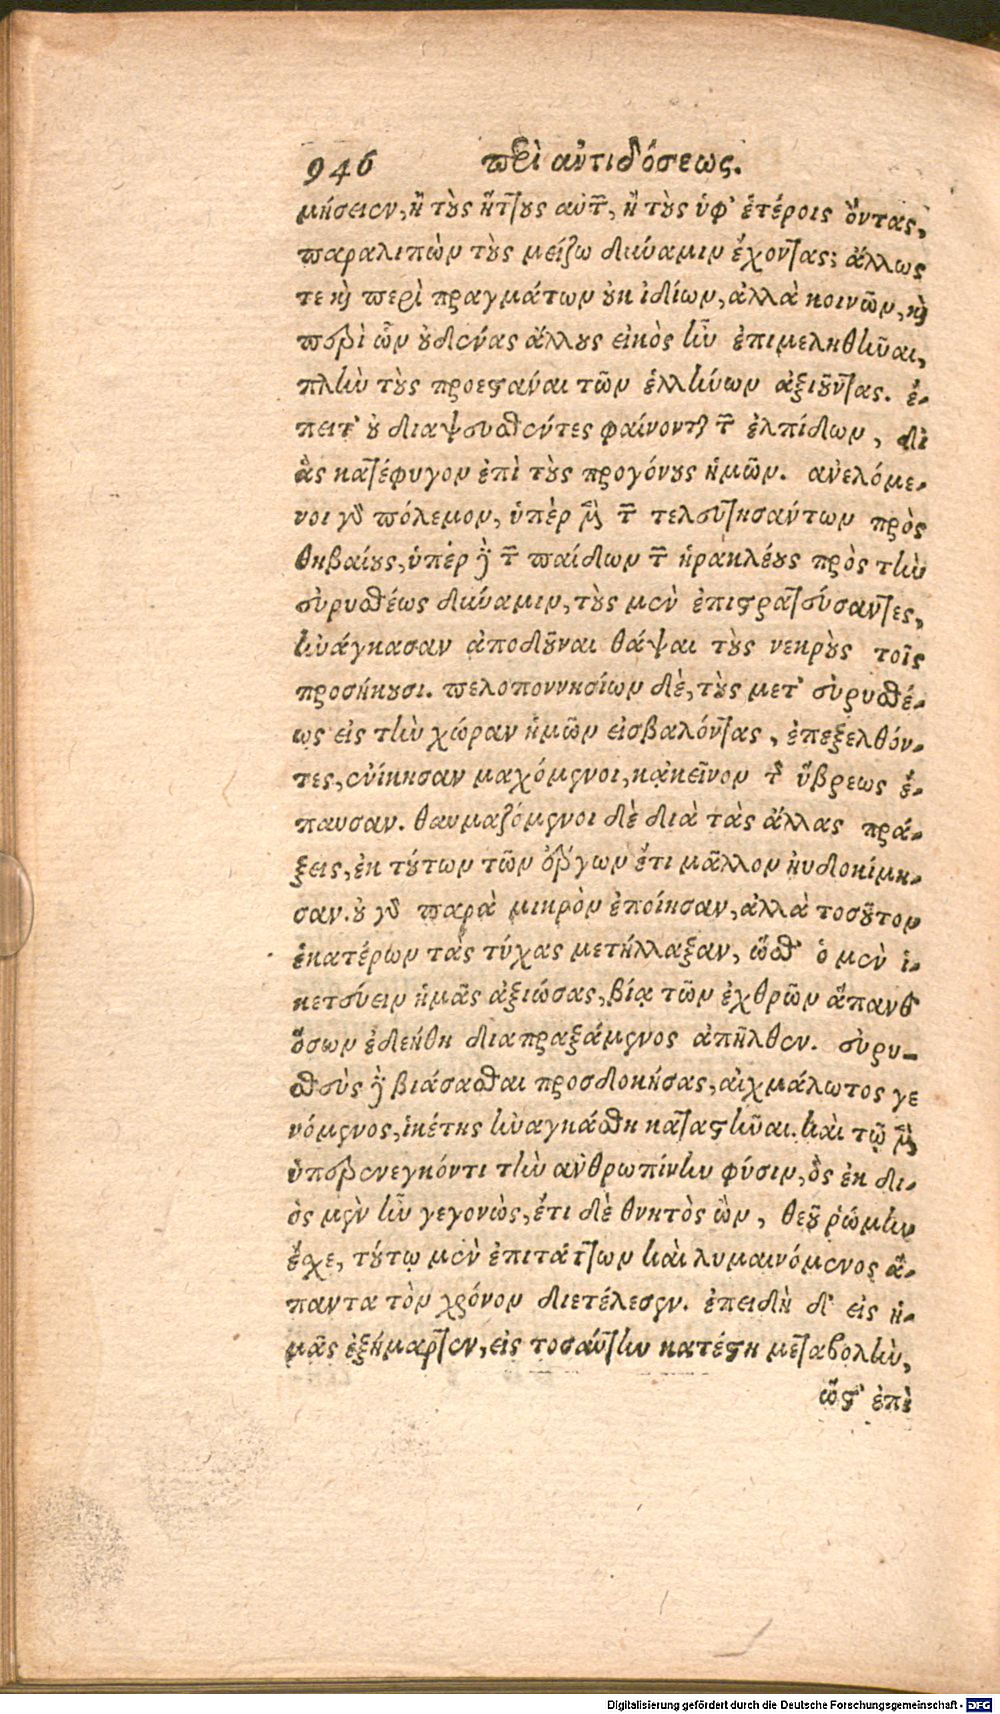 946 περὶ ἀντιδόσεως.
μήσειεν, ἢ τοὺς ἥττους αὐτῶν, ἢ τοὺς ὑφ' ἑτέροις ὄντας,
παραλιπὼν τοὺς μείζω δύναμιν ἔχοντας; ἄλλως
τε καὶ περὶ πραγμάτων οὐκ ἰδίων, ἀλλὰ κοινῶν, καὶ
περὶ ὧν οὐδένας ἄλλους εἰκὸς ἦν ἐπιμεληθῆναι,
πλὴν τοὺς προεστάναι τῶν ἑλλήνων ἀξιοῦντας. ἔ-
πειτ' οὐ διαψευσθέντες φαίνονται τῶν ἐλπίδων, δι'
ἃς κατέφυγον ἐπὶ τοὺς προγόνους ἡμῶν. ἀνελόμε-
νοι γὰρ πόλεμον, ὑπὲρ μὲν τῶν τελευτησάντων πρὸς
θηβαίους, ὑπὲρ δὲ τῶν παίδων τῶν ἡρακλέους πρὸς τὴν
εὐρυσθέως δύναμιν, τοὺς μὲν ἐπιστρατεύσαντες,
ἠνάγκασαν ἀποδοῦναι θάψαι τοὺς νεκροὺς τοῖς
προσήκουσι. πελοποννησίων δὲ, τοὺς μετ' εὐρυσθέ-
ως εἰς τὴν χώραν ἡμῶν εἰσβαλόντας, ἐπεξελθόν-
τες, ἐνίκησαν μαχόμενοι, κἀκεῖνον τῆς ὕβρεως ἔ-
παυσαν. θαυμαζόμενοι δὲ διὰ τὰς ἄλλας πρά-
ξεις, ἐκ τούτων τῶν ἔργων ἔτι μᾶλλον ηὐδοκίμη-
σαν. οὐ γὰρ παρὰ μικρὸν ἐποίησαν, ἀλλὰ τοσοῦτον
ἑκατέρων τὰς τύχας μετήλλαξαν, ὥσθ' ὁ μὲν ἱ-
κετεύειν ἡμᾶς ἀξιώσας, βίᾳ τῶν ἐχθρῶν ἅπανθ'
ὅσων ἐδεήθη διαπραξάμενος ἀπῆλθεν. εὐρυ-
σθεὺς δὲ βιάσασθαι προσδοκήσας, αἰχμάλωτος γε
νόμενος, ἱκέτης ἠναγκάσθη καταστῆναι. καὶ τῷ μὲν
ὑπερενεγκόντι τὴν ἀνθρωπίνην φύσιν, ὃς ἐκ δι-
ὸς μὲν ἦν γεγονὼς, ἔτι δὲ θνητὸς ὢν, θεοῦ ῥώμην
ἔσχε, τούτῳ μὲν ἐπιτάττων καὶ λυμαινόμενος ἅ-
παντα τὸν χρόνον διετέλεσεν. ἐπειδὴ δ' εἰς ἡ-
μᾶς ἐξήμαρτεν, εἰς τοσαύτην κατέστη μεταβολὴν,
ὥστ' ἐπὶ
Digitalisierung gefördert durch die Deutsche Forschungsgemeinschaft - DFG